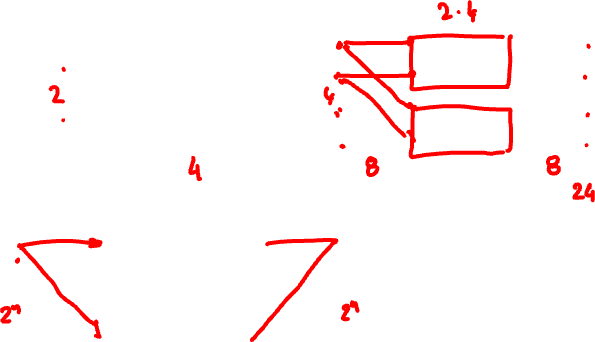 2·4
2
4
4
8
8
24
2ⁿ
2ⁿ